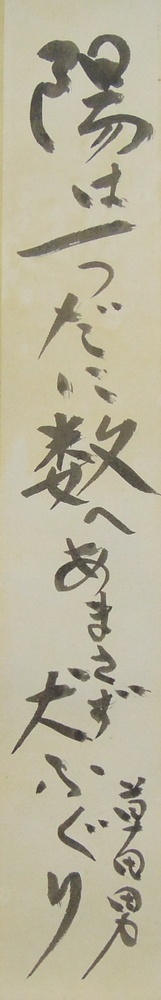 陽は一つだに数へあまさず犬ふぐり
草田男